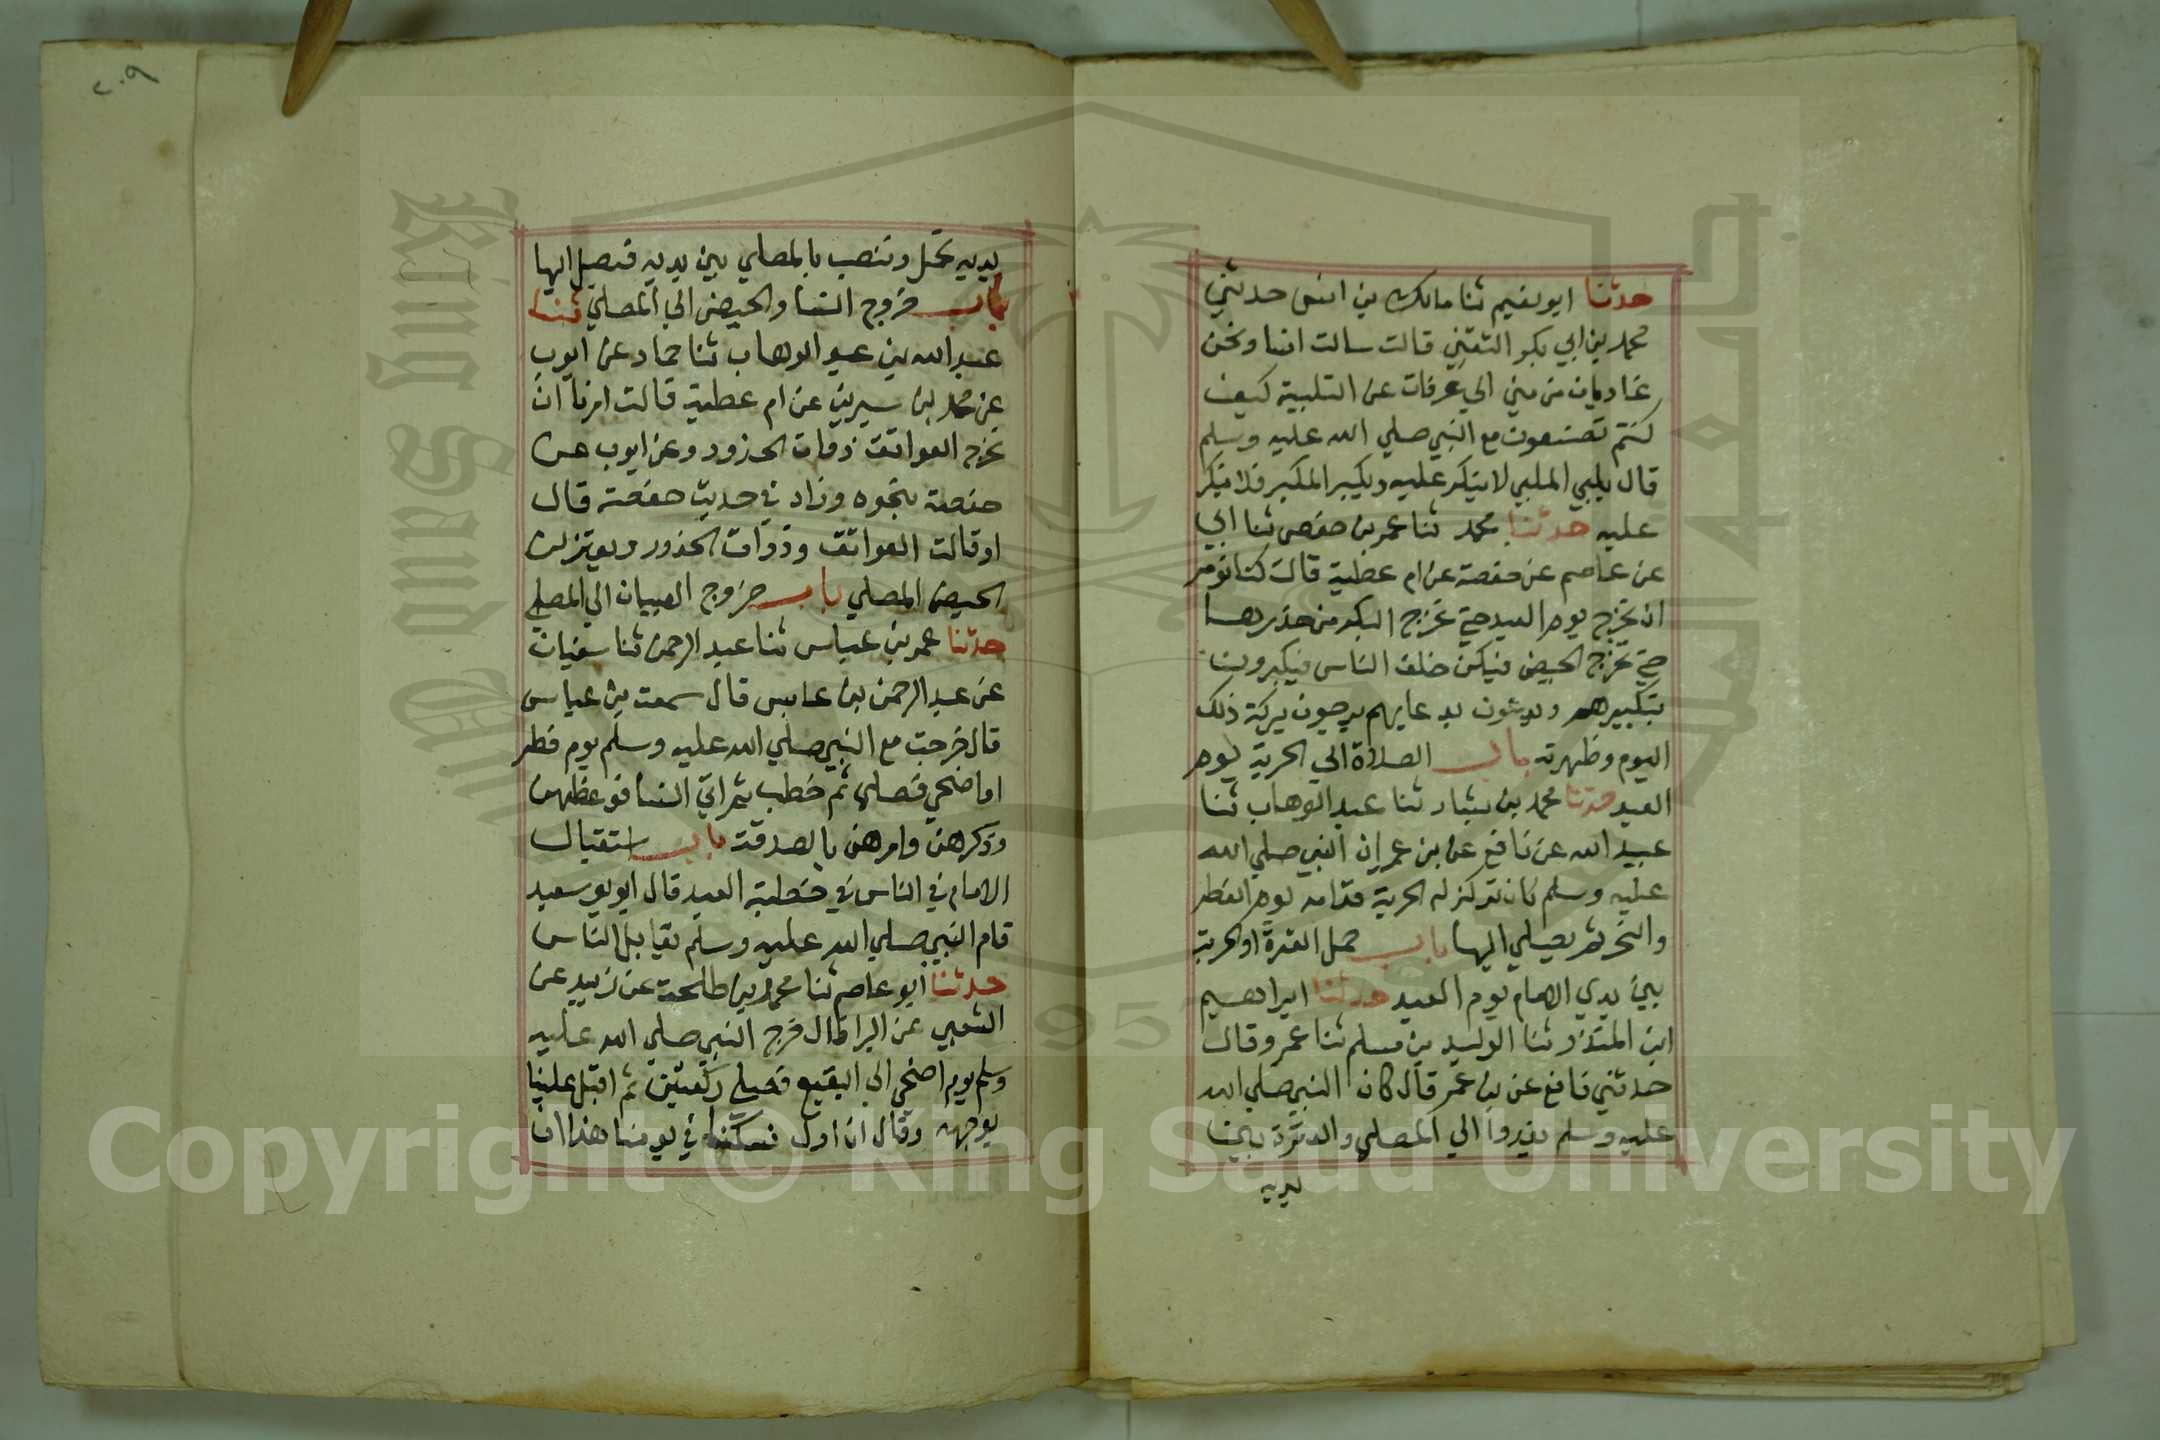 حدثنا ابو نعيم ثنا مالك بن انس حدثني
محمد بن ابي بكر الثقفي قالت سالت انسا ونحن
غاديان من مني الي عرفات عن التلبية كيف
كنتم تصنعون مع النبي صلي الله عليه وسلم
قال يلبي الملبي لا ينكر عليه ويكبر المكبر فلا ينكر
عليه حدثنا محمد ثنا عمر بن حفص ثنا ابي
عن عاصم عن حفصة عن ام عطية قالت كنا نومر
ان نخرج يوم العيد حتي نخرج البكر من خدرها
حتي نخرج الحيض فيكن خلف الناس فيكبرون
بتكبيرهم ويدعون بدعايهم يرجون بركة ذلك
اليوم وطهرته باب الصلاة الي الحربة يوم
العيد حدثنا محمد بن بشار ثنا عبد الوهاب ثنا
عبيد الله عن نافع عن بن عمر ان النبي صلي الله
عليه وسلم كان تركز له الحربة قدامه يوم الفطر
والنحر ثم يصلي اليها باب حمل العنزة او الحربة
بين يدي الامام يوم العيد حدثنا ابراهيم
ابن المنذر ثنا الوليد بن مسلم ثنا عمرو قال
حدثني نافع عن بن عمر قال كان النبي صلي الله
عليه وسلم يغدوا الي المصلي والعنزة بين
يديه
٢٠٩
يديه تحمل وتنصب بالمصلي بين يديه فيصل اليها
باب خروج النسا والحيض الي المصلي ثنا
عبد الله بن عبد الوهاب ثنا حماد عن ايوب
عن محمد بن سيرين عن ام عطية قالت امرنا ان
نخرج العواتق ذوات الخدور وعن ايوب عن
حفصة بنحوه وزاد في حديث حفصة قال
او قالت العواتق وذوات الخدور ويعتزلن
الحيض المصلي باب خروج الصبيان الي المصلي
حدثنا عمر بن عباس ثنا عبد الرحمن ثنا سفيان
عن عبد الرحمن بن عابس قال سمعت بن عباس
قال خرجت مع النبي صلي الله عليه وسلم يوم فطر
او اضحي فصلي ثم خطب ثم اتي النسا فوعظهن
وذكرهن وامرهن بالصدقة باب استقبال
الامام في الناس في خطبة العيد قال ابو سعيد
قام النبي صلي الله عليه وسلم يقابل الناس
حدثنا ابو عاصم ثنا محمد بن طلحة عن زبيد عن
الشعبي عن البرا قال خرج النبي صلي الله عليه
وسلم يوم اضحي الي البقيع فصلي ركعتين ثم اقبل علينا
بوجهه وقال ان اول نسكنا في يومنا هذا ان
King Saud University
1957
Copyright © King Saud University